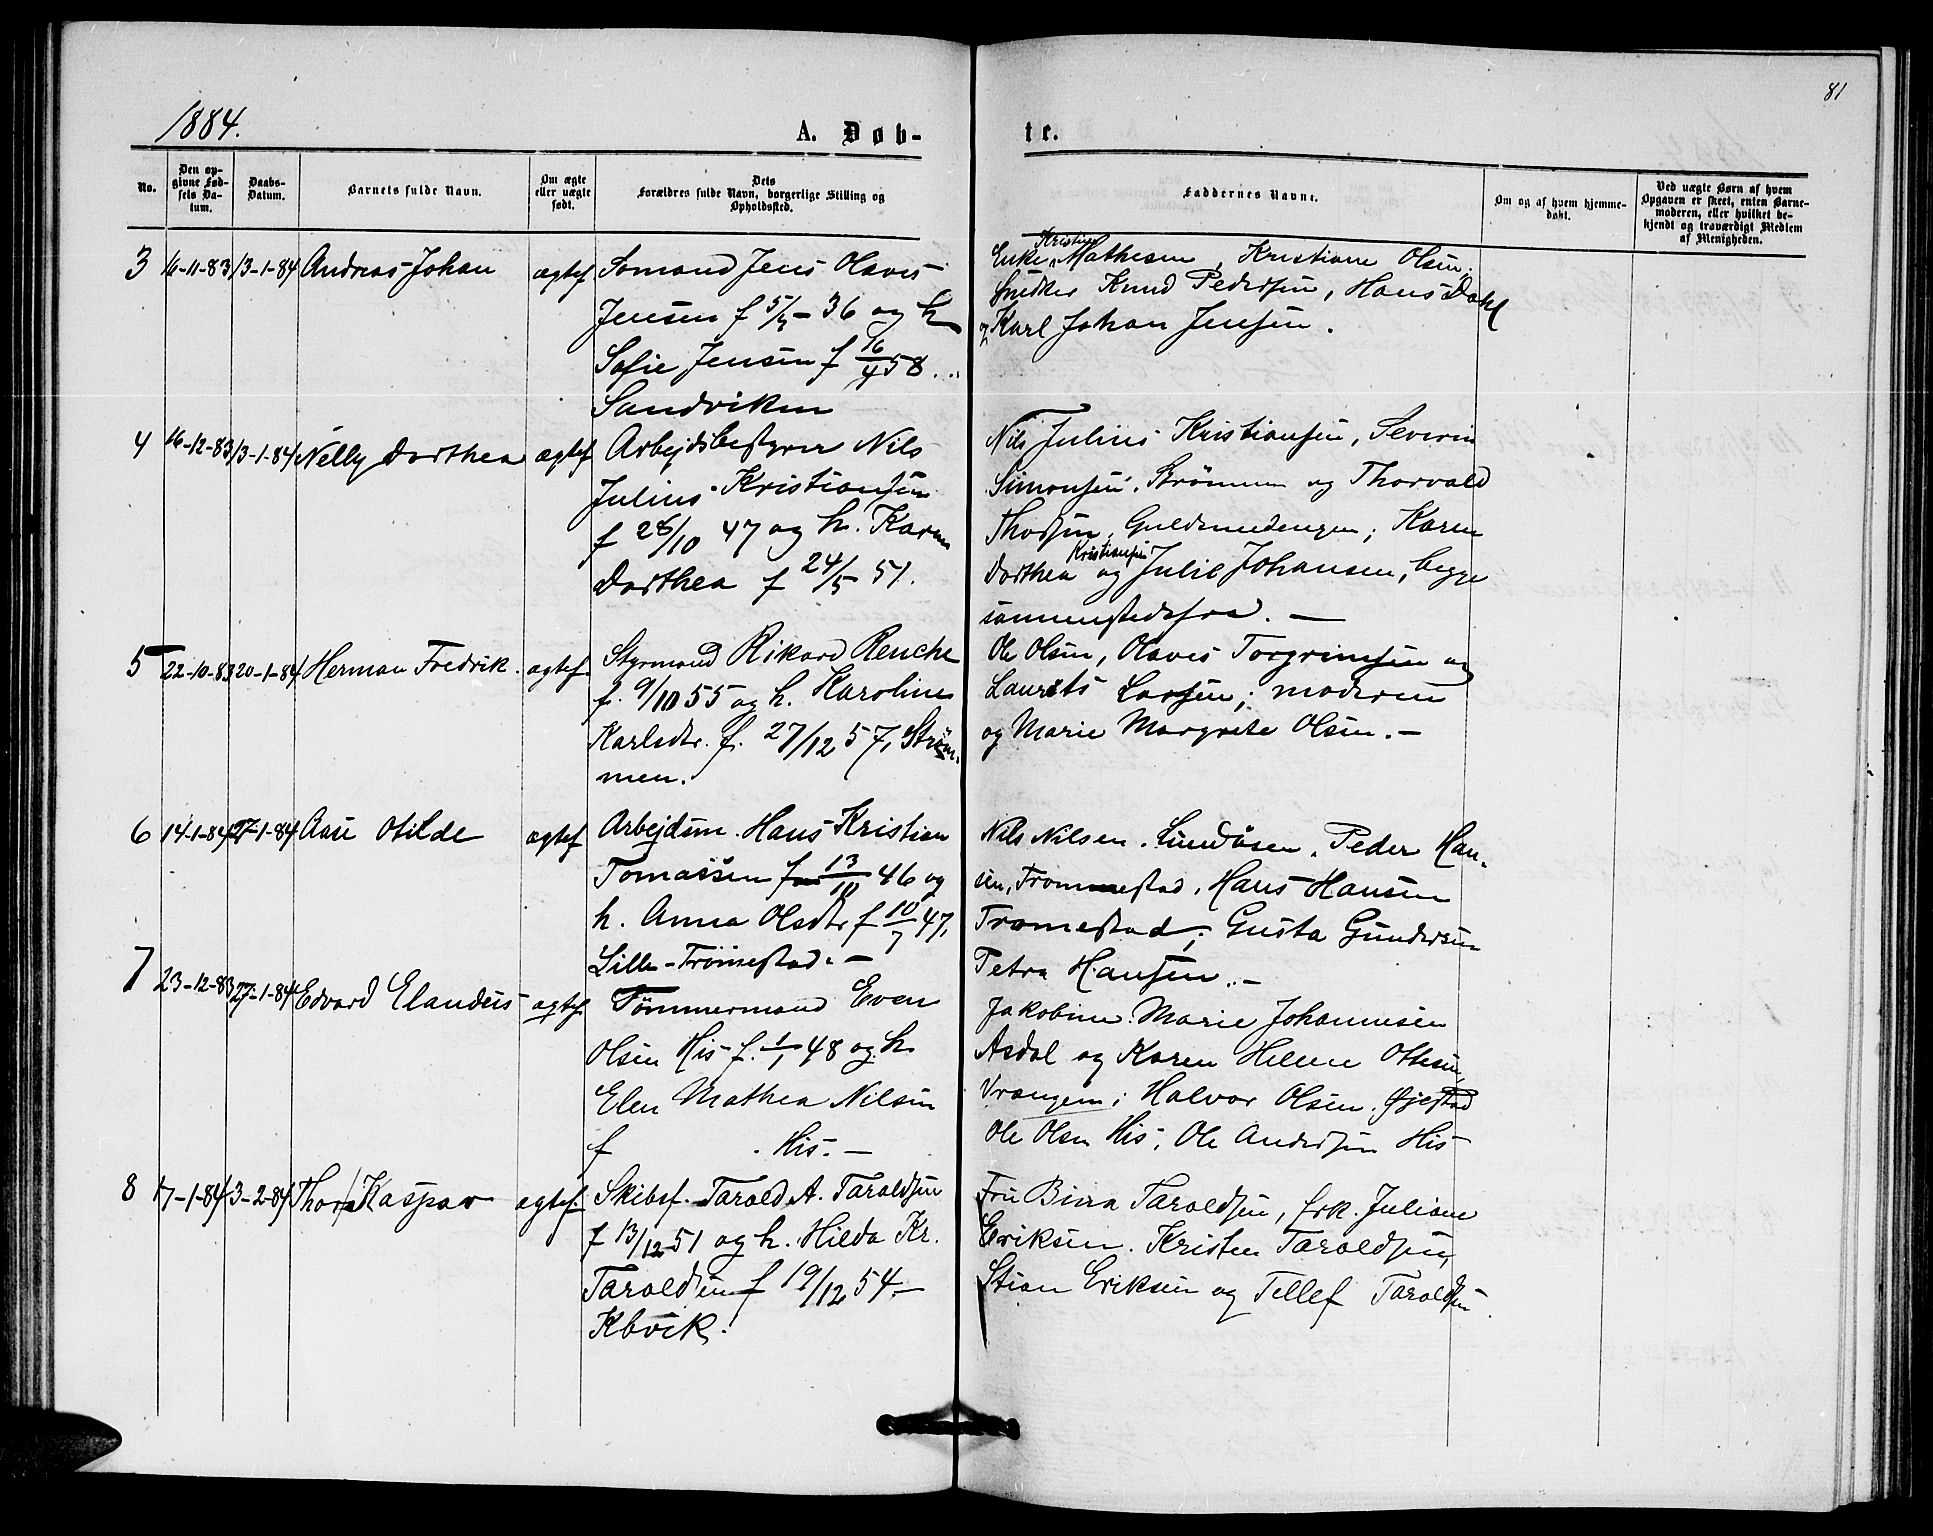 81
1884.
A. Døb-
te.
No.
Den op-
givne Fød-
sels Da-
tum.
Daabs-
Datum.
Barnets fulde Navn.
Om ægte
eller uægte
født.
Dets
Forældres fulde Navn, borgerlige Stilling og
Opholdssted.
Faddernes Navne.
Om og af hvem hjemme-
døbt.
Ved uægte Børn af hvem
Opgaven er skeet, enten Barne-
moderen, eller hvilket be-
kjendt og troværdigt Medlem
af Menigheden.
3 16-11-83 13-1-84 Andreas Johan ægtef Sømand Jens Olaves
Jensen f 5/7-36 og h
Sofie Jensen f 16/4 58.
Sandviken
Kristine
Enke Mathesen, Kristiane Olsen,
Snedker Knud Pedersen, Hans Dahl
og Karl Johan Jensen.
4 16-12-83 13-1-84 Nelly Dorthea ægtef Arbejdsbestyrer Nils
Julius Kristiansen
f 28/10 47 og h. Karen
Dorthea f 24/5 51.
Nils Julius Kristiansen, Severin
Simonsen, Strømmen og Thorvald
Guldsmedengen; Karen
Kristiansen
Dorthea og Julie Johansen, begge
sammestedsfra. —
5 22-10-83 20-1-84 Herman Fredrik. ægtef. Styrmand Rikard Renche
f. 9/10 55 og h. Karoline
Karlsdtr. f. 27/12 57, Strøm-
men.
Ole Olsen, Olaves Torgrimsen og
Laurits Larsen; moderen
og Marie Margrete Olsen. —
6 14-1-84 27-1-84 Aase Otilde ægtef Arbejdsm. Hans Kristian
Tomassen f 13/10 46 og
h. Anna Olsdtr f 10/7 47,
Lille-Trømestad. —
Nils Nilsen, Lundåsen, Peder Han-
sen, Trommestad, Hans Hansen
Tromestad; Gusta Gundersen
Petra Hansen. —
7 23-12-83 27-1-84 Edvard Elandius ægtef. Tømmermand Even
Olsen His f. 1/1 48 og h.
Elen Mathea Nilsen
f . His. —
Jakobine Marie Johannesen
Asdal og Karen Helene Ottesen,
Vrangen; Halvor Olsen, Øjestad
Ole Olsen His, Ole Andersen His
8 17-1-84 3-2-84 Thor Kaspar ægtef. Skibsf. Tarald A. Taraldsen
f 13/12 51 og h. Hilda Kr.
Taraldsen f 19/12 54 —
Kbvik.
Fru Birra Taraldsen, frk. Juliane
Eriksen. Kristen Taraldsen,
Stian Eriksen og Tellef Taraldsen.